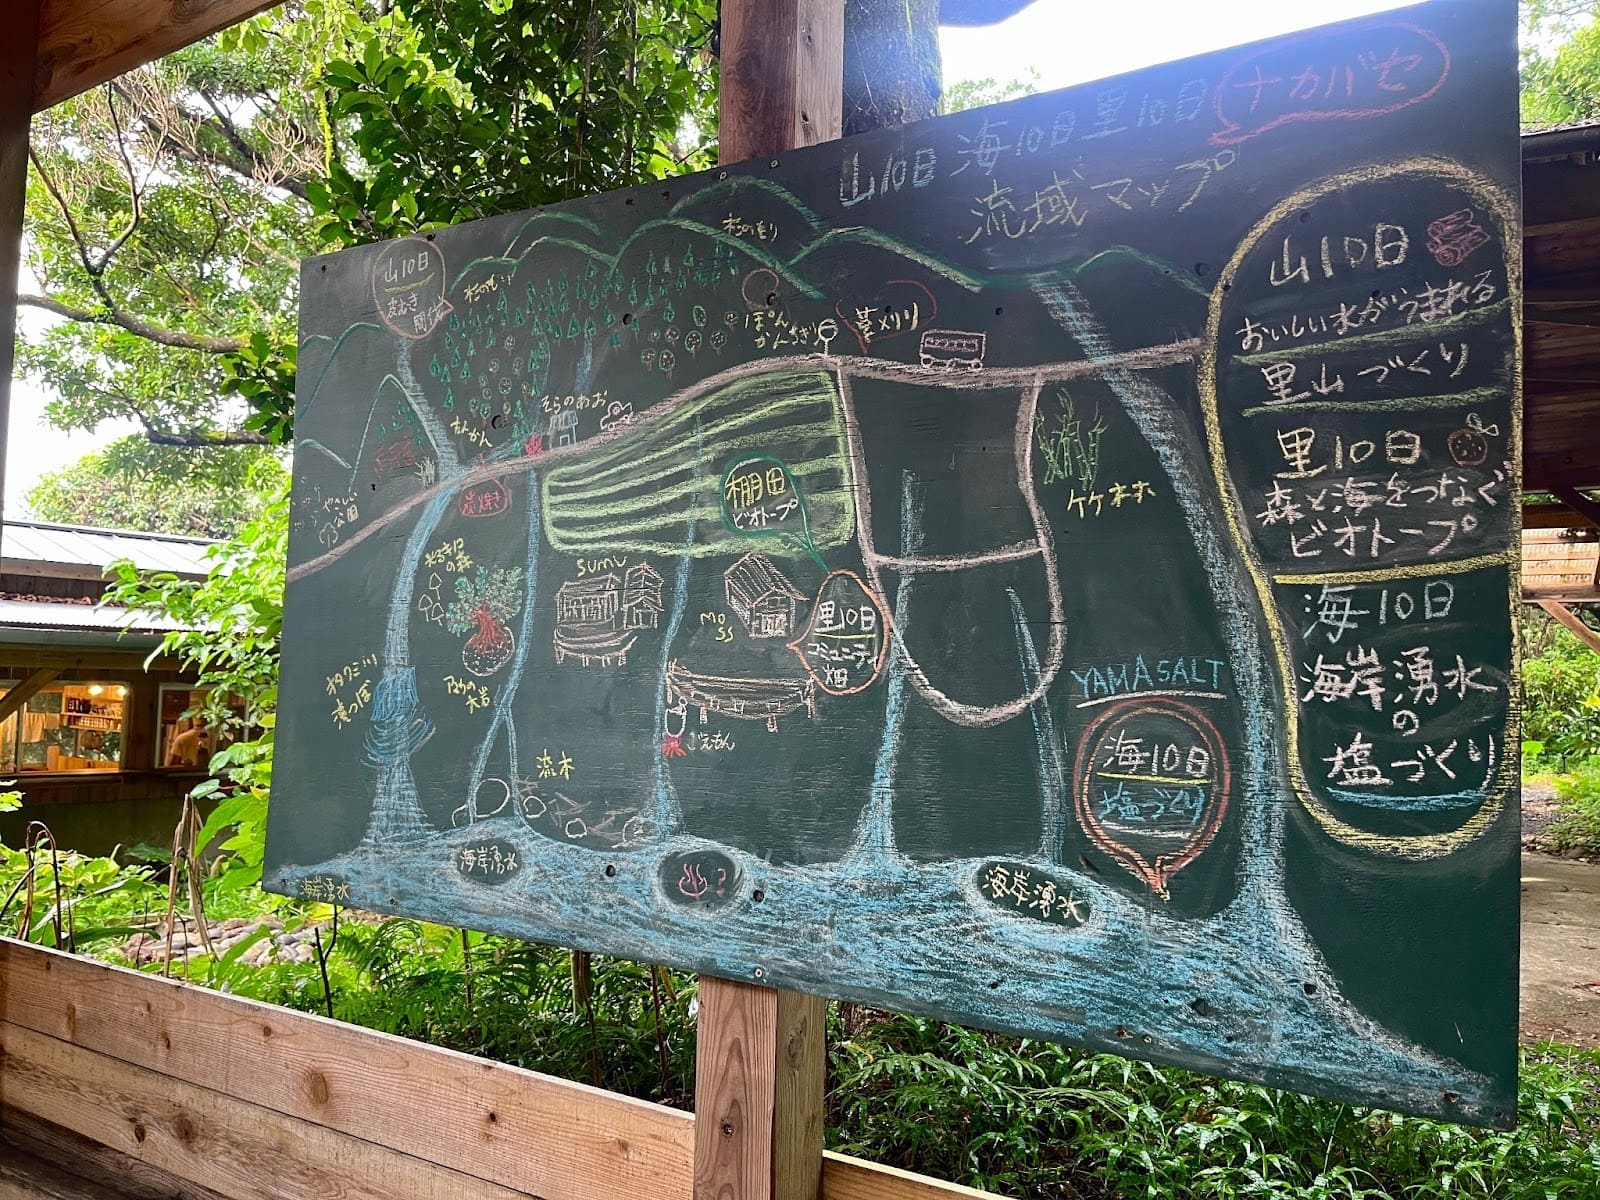 山10日 海10日 里10日 ナカバセ
流域マップ
山10日
皮むき
間伐
杉のもり
ぽん
かんちぎり
草刈り
そらのあお
炭焼き
やさしい
公園
棚田
ビオトープ
竹林
sumu
moss
里10日
コミュニティ
畑
滝つぼ
ごえもん
流木
YAMASALT
海10日
塩づくり
海岸湧水
海岸湧水
♨?
海岸湧水
山10日
おいしい水がうまれる
里山づくり
里10日
森と海をつなぐ
ビオトープ
海10日
海岸湧水
の
塩づくり